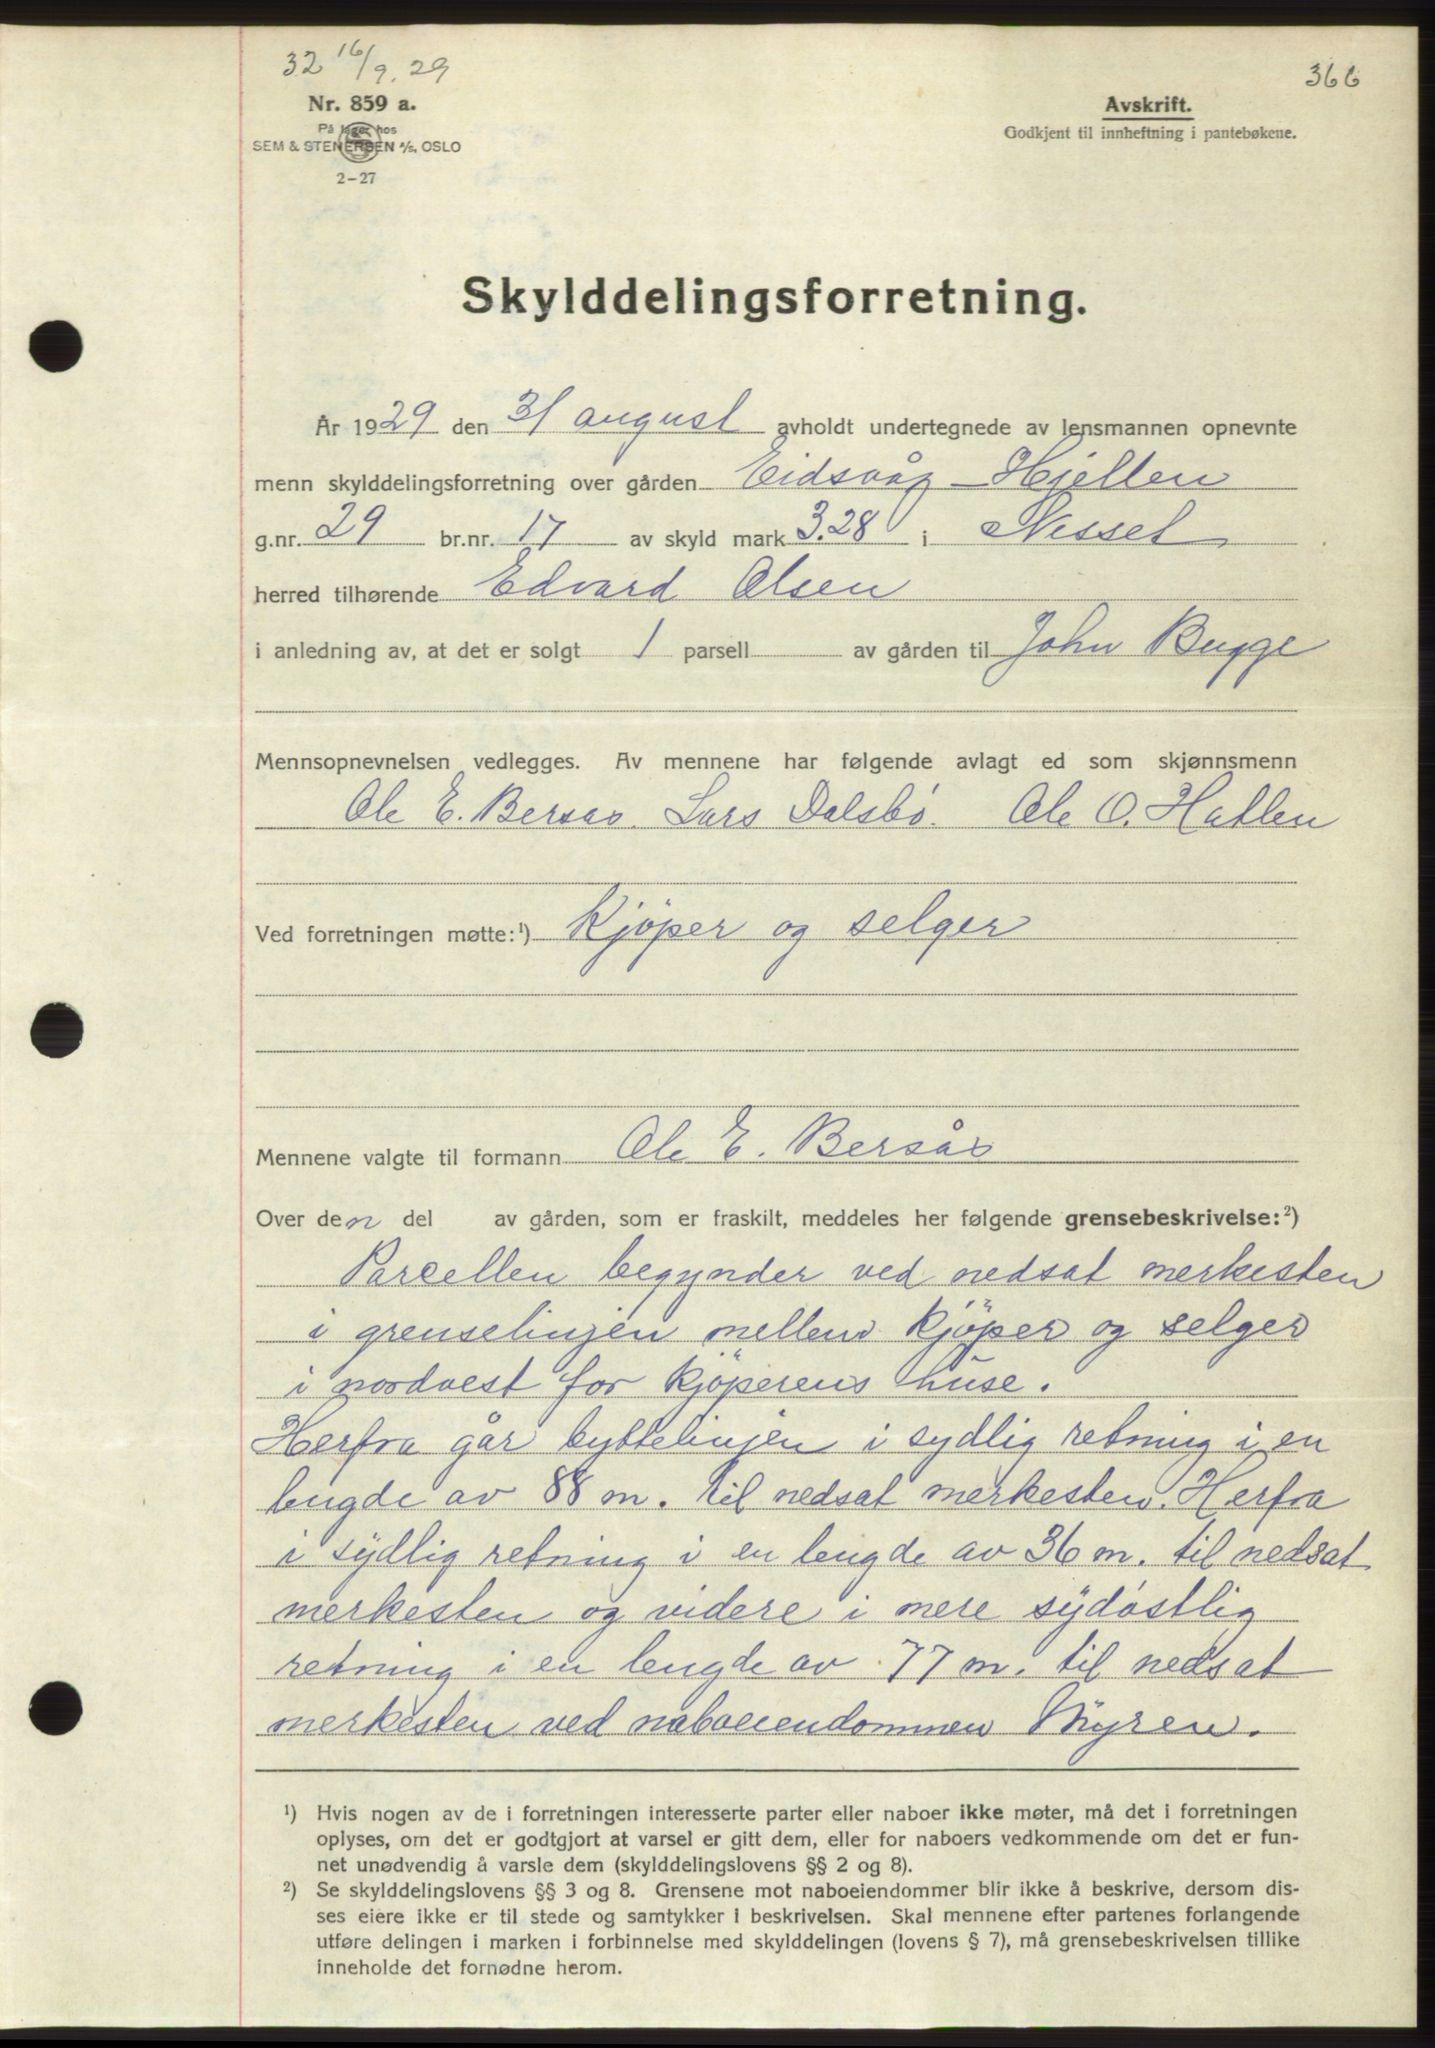 32 16/9.29
366
Nr. 859 a.
På lager hos
SEM & STENERSEN A/S, OSLO
2-27
Avskrift.
Godkjent til innheftning i pantebøkene.
Skylddelingsforretning.
År 1929 den 31 august avholdt undertegnede av lensmannen opnevnte
menn skylddelingsforretning over gården Eidsvåg - Hjellen
g.nr. 29 br.nr. 17 av skyld mark 3.28 i Nesset
herred tilhørende Edvard Olsen
i anledning av, at det er solgt 1 parsell av gården til John Bugge
Mennsopnevnelsen vedlegges. Av mennene har følgende avlagt ed som skjønnsmenn
Ole E. Bersås. Lars Dalsbö. Ole O. Hatlen
Ved forretningen møtte:¹) Kjöper og selger
Mennene valgte til formann Ole E. Bersås
Over den del av gården, som er fraskilt, meddeles her følgende grensebeskrivelse:²)
Parcellen begynder ved nedsat merkesten
i grenselinjen mellem kjöper og selger
i nordvest for kjöperens huse.
Herfra går byttelinjen i sydlig retning i en
lengde av 88 m. til nedsat merkesten. Herfra
i sydlig retning i en lengde av 36 m. til nedsat
merkesten og videre i mere sydöstlig
retning i en lengde av 77 m. til nedsat
merkesten ved naboeiendommen Myren.
¹) Hvis nogen av de i forretningen interesserte parter eller naboer ikke møter, må det i forretningen
oplyses, om det er godtgjort at varsel er gitt dem, eller for naboers vedkommende om det er fun-
net unødvendig å varsle dem (skylddelingslovens §§ 2 og 8).
²) Se skylddelingslovens §§ 3 og 8. Grensene mot naboeiendommer blir ikke å beskrive, dersom dis-
ses eiere ikke er til stede og samtykker i beskrivelsen. Skal mennene efter partenes forlangende
utføre delingen i marken i forbinnelse med skylddelingen (lovens § 7), må grensebeskrivelsen tillike
inneholde det fornødne herom.